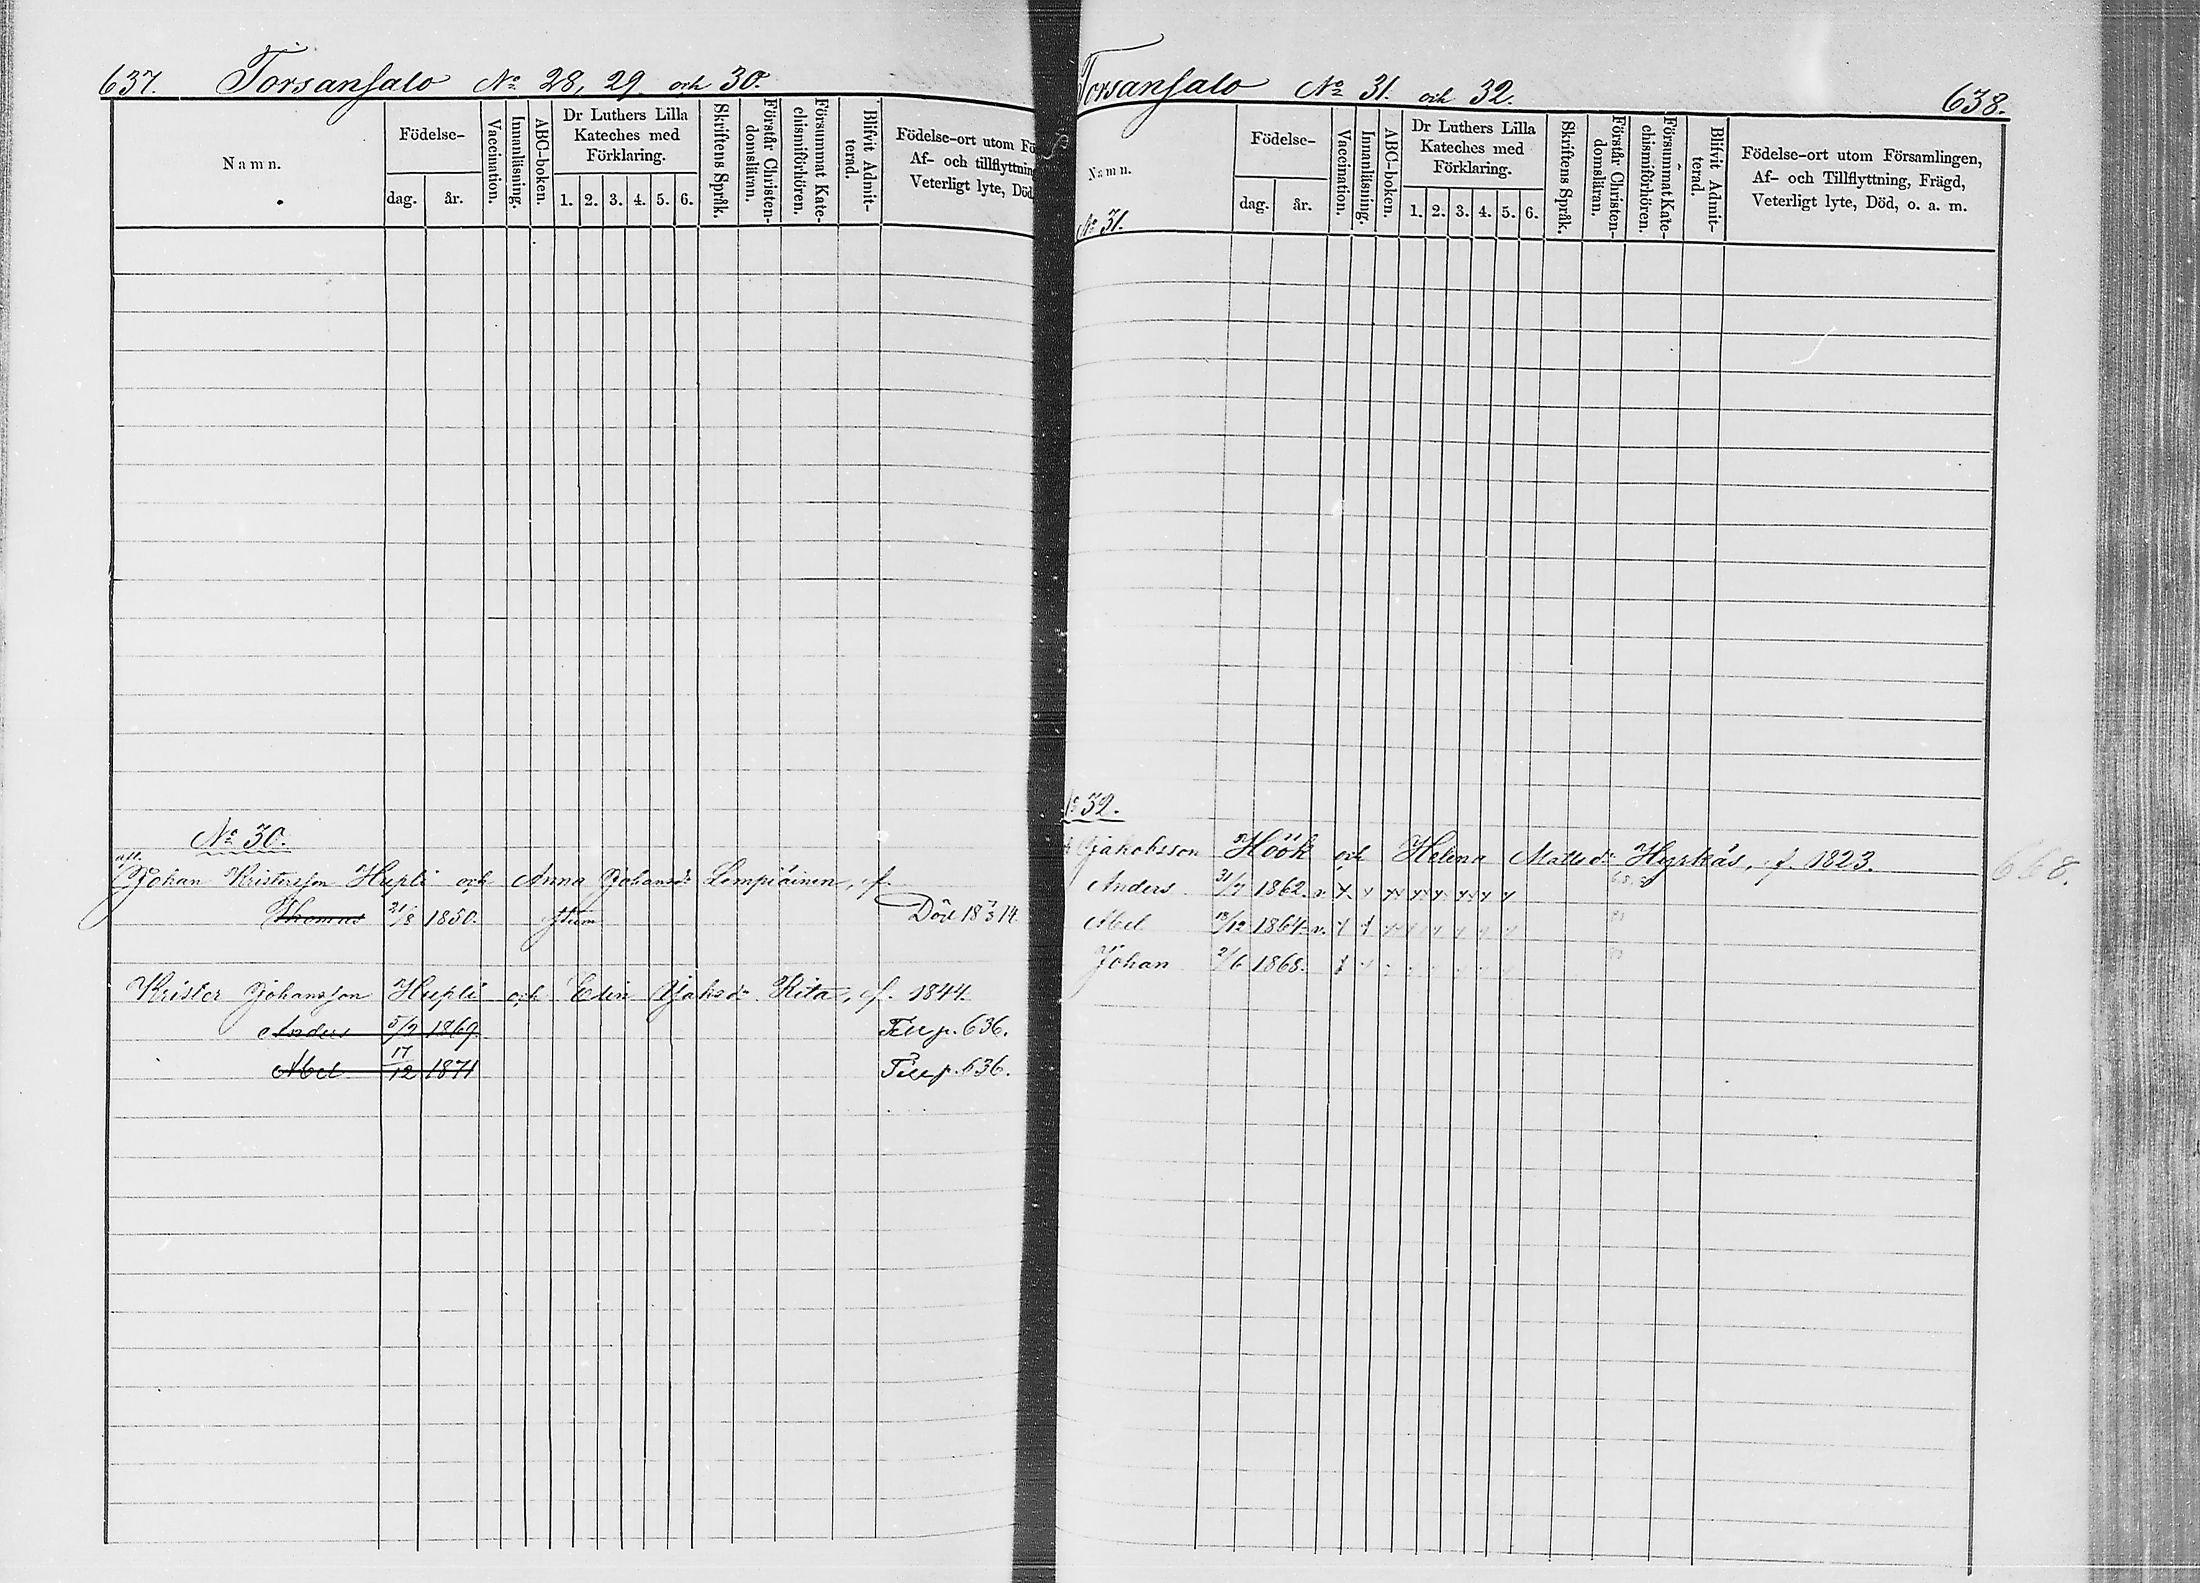 637. Torsansalo No 28, 29. och 30.
Namn.
Födelse-
dag. år.
Vaccination.
Innanläsning.
ABC-boken.
Dr Luthers Lilla
Kateches med
Förklaring.
1. 2. 3. 4. 5. 6.
Skriftens Språk.
Förstår Christen-
domsläran.
Försummat Kate-
chismiförhören.
Blifvit Admit-
terad.
Födelse-ort utom Fö
Af- och tillflyttning
Veterligt lyte, Död
No 30.
Johan Kristersson Hupli och Anna Johansdr Lempiäinen, f.
Thomas 21/8 1850. stum Död 18 3/3 74.
Krister Johansson Hupli och Elin Jaksdr Kita, f. 1844.
Anders 5/7 1869. Till p. 636.
Abel 17/12 1871 Till p. 636.
Torsansalo No 31. och 32. 638.
Namn.
Födelse-
dag. år.
Vaccination.
Innanläsning.
ABC-boken.
Dr Luthers Lilla
Kateches med
Förklaring.
1. 2. 3. 4. 5. 6.
Skriftens Språk.
Förstår Christen-
domsläran.
Försummat Kate-
chismiförhören.
Blifvit Admit-
terad.
Födelse-ort utom Församlingen,
Af- och Tillflyttning, Frägd,
Veterligt lyte, Död, o. a. m.
No 31.
32.
Jakobsson Höök och Helena Mattsdr Hyrkäs, f. 1823. 668.
Anders 31/7 1862. v.
Abel 13/12 1864. v.
Johan 2/6 1868.